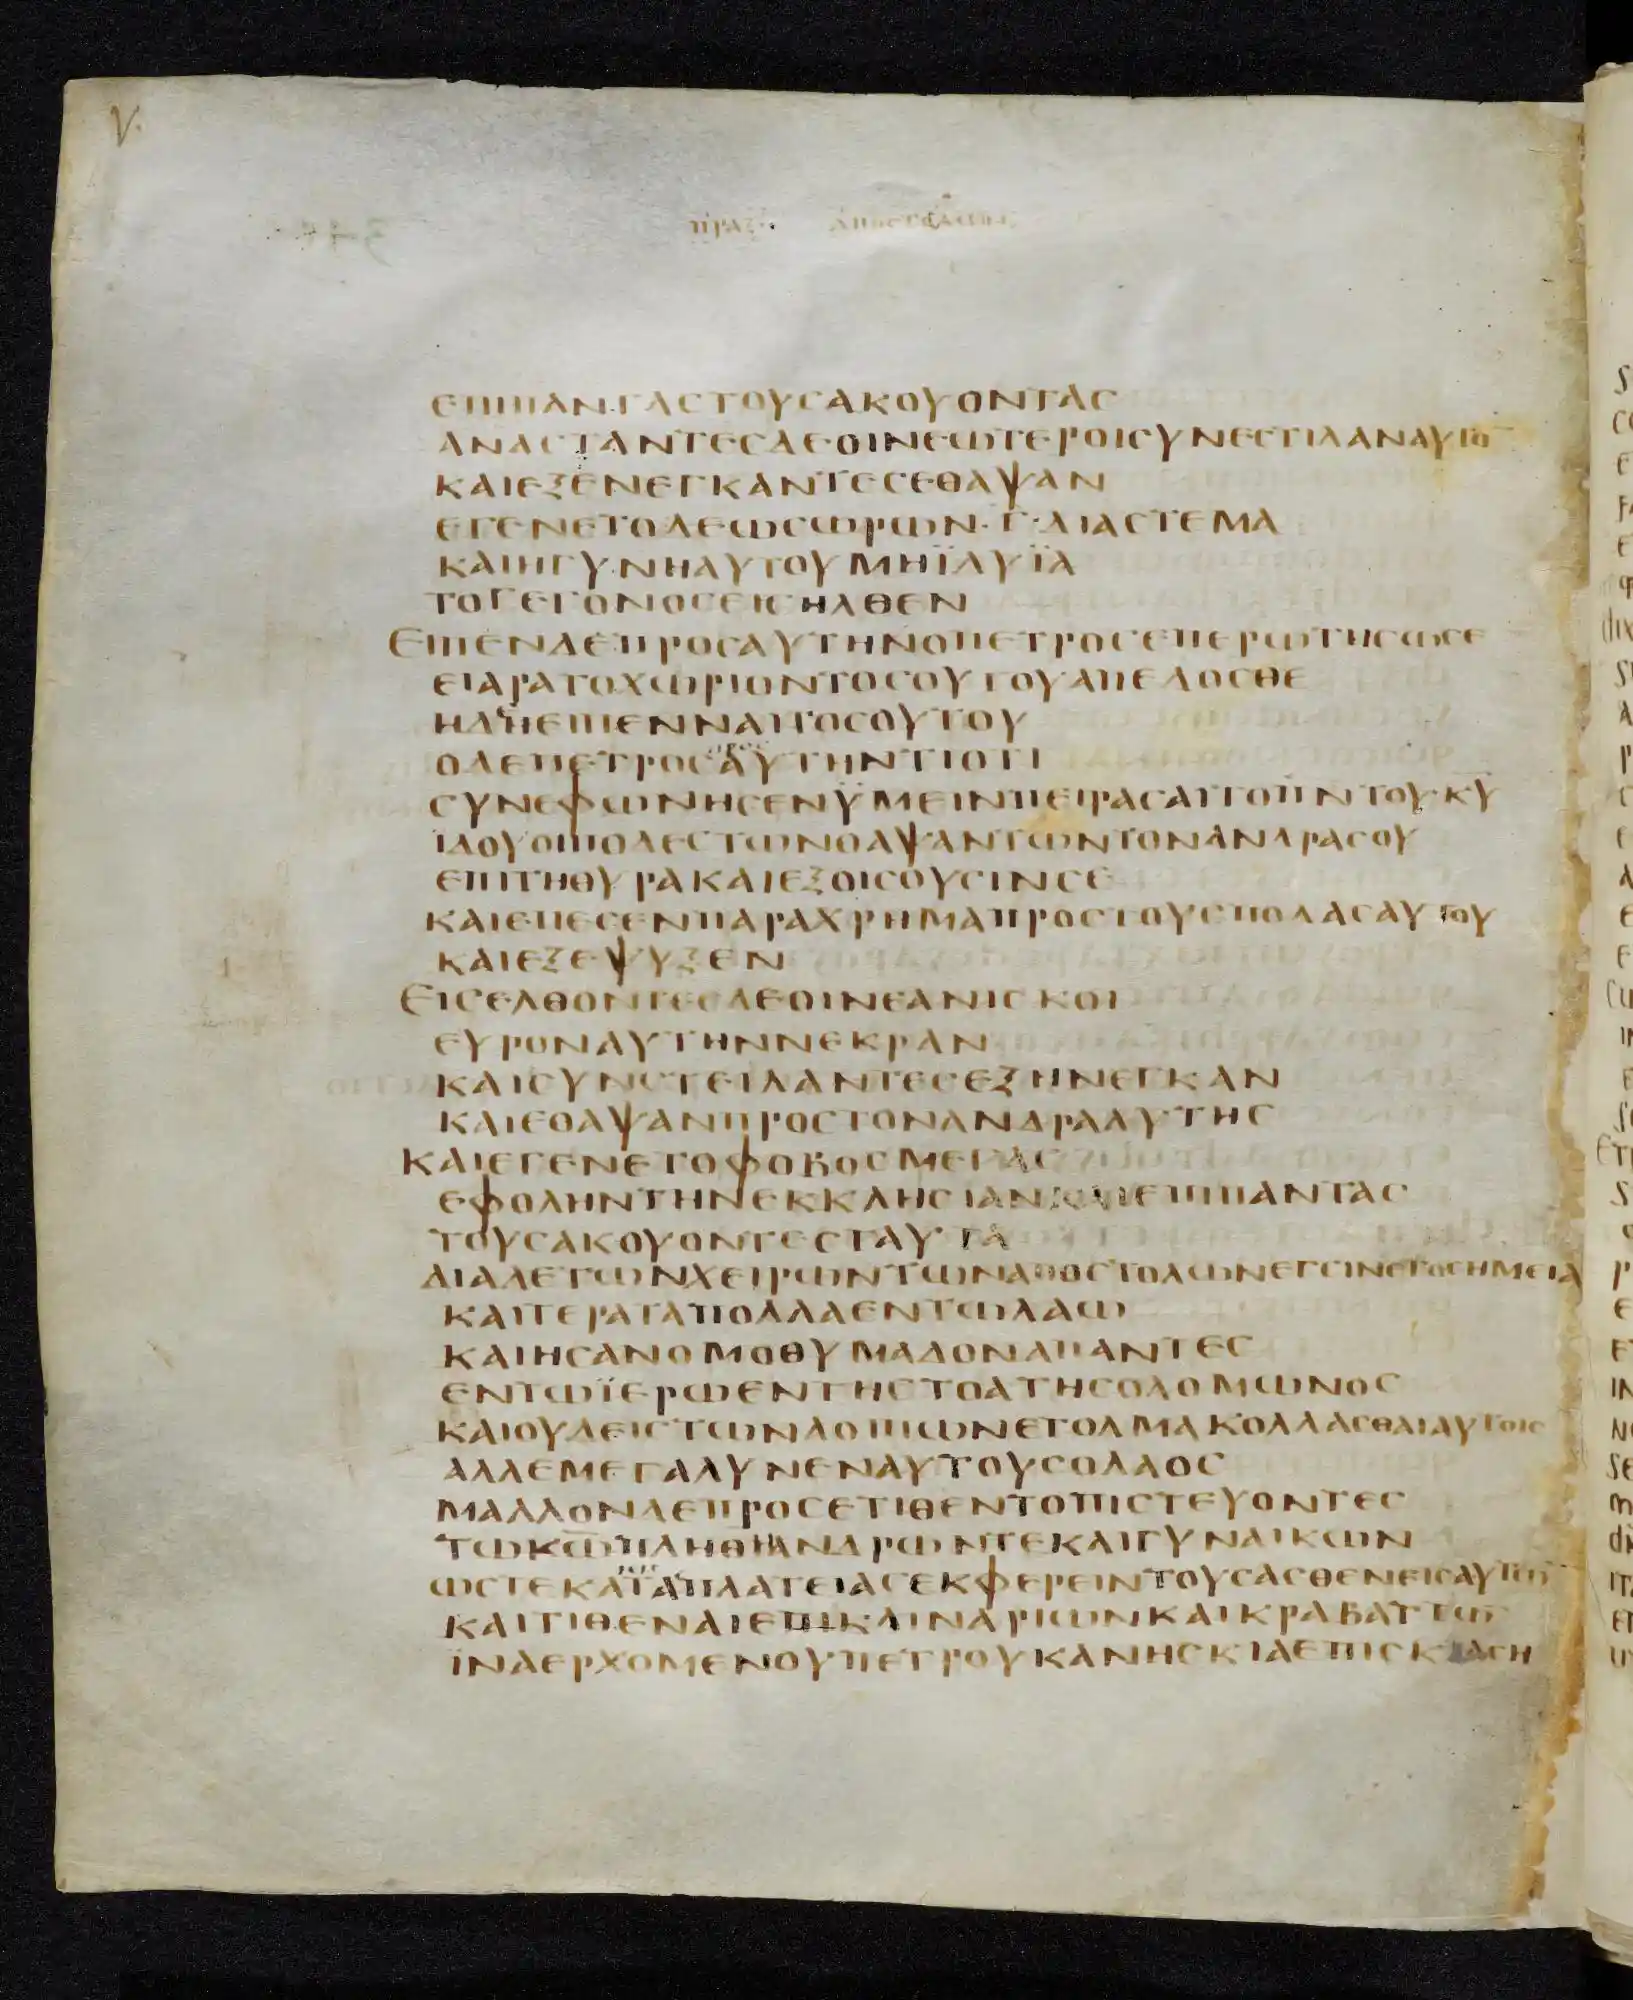 ΠΡΑΞ ΑΠΟΣΤΟΛΩΝ
ΕΠΙΠΑΝΤΑΣΤΟΥΣΑΚΟΥΟΝΤΑΣ
ΑΝΑΣΤΑΝΤΕΣΔΕΟΙΝΕΩΤΕΡΟΙΣΥΝΕΣΤΙΛΑΝΑΥΤΟ̅
ΚΑΙΕΞΕΝΕΓΚΑΝΤΕΣΕΘΑΨΑΝ
ΕΓΕΝΕΤΟΔΕΩΣΩΡΩΝ·Γ·ΔΙΑΣΤΕΜΑ
ΚΑΙΗΓΥΝΗΑΥΤΟΥΜΗΪΔΥΪΑ
ΤΟΓΕΓΟΝΟΣΕΙΣΗΛΘΕΝ
ΕΙΠΕΝΔΕΠΡΟΣΑΥΤΗΝΟΠΕΤΡΟΣΕΠΕΡΩΤΗΣΩΣΕ
ΕΙΑΡΑΤΟΧΩΡΙΟΝΤΟΣΟΥΤΟΥΑΠΕΔΟΣΘΕ
ΗΔΕΕΙΠΕΝΝΑΙΤΟΣΟΥΤΟΥ
ΟΔΕΠΕΤΡΟΣΠΡΟΣΑΥΤΗΝΤΙΟΤΙ
ΣΥΝΕΦΩΝΗΣΕΝΫΜΕΙΝΠΕΙΡΑΣΑΙΤΟΠ̅Ν̅ΤΟΥΚ̅Υ̅
ΙΔΟΥΟΙΠΟΔΕΣΤΩΝΘΑΨΑΝΤΩΝΤΟΝΑΝΔΡΑΣΟΥ
ΕΠΙΤΗΘΥΡΑΚΑΙΕΞΟΙΣΟΥΣΙΝΣΕ
ΚΑΙΕΠΕΣΕΝΠΑΡΑΧΡΗΜΑΠΡΟΣΤΟΥΣΠΟΔΑΣΑΥΤΟΥ
ΚΑΙΕΞΕΨΥΞΕΝ
ΕΙΣΕΛΘΟΝΤΕΣΔΕΟΙΝΕΑΝΙΣΚΟΙ
ΕΥΡΟΝΑΥΤΗΝΝΕΚΡΑΝ
ΚΑΙΣΥΝΣΤΕΙΛΑΝΤΕΣΕΞΗΝΕΓΚΑΝ
ΚΑΙΕΘΑΨΑΝΠΡΟΣΤΟΝΑΝΔΡΑΑΥΤΗΣ
ΚΑΙΕΓΕΝΕΤΟΦΟΒΟΣΜΕΓΑΣ
ΕΦΟΛΗΝΤΗΝΕΚΚΛΗΣΙΑΝΚΑΙΕΠΙΠΑΝΤΑΣ
ΤΟΥΣΑΚΟΥΟΝΤΕΣΤΑΥΤΑ
ΔΙΑΔΕΤΩΝΧΕΙΡΩΝΤΩΝΑΠΟΣΤΟΛΩΝΕΓΕΙΝΕΤΟΣΗΜΕΙΑ
ΚΑΙΤΕΡΑΤΑΠΟΛΛΑΕΝΤΩΛΑΩ
ΚΑΙΗΣΑΝΟΜΟΘΥΜΑΔΟΝΑΠΑΝΤΕΣ
ΕΝΤΩΪΕΡΩΕΝΤΗΣΤΟΑΤΗΣΟΛΟΜΩΝΟΣ
ΚΑΙΟΥΔΕΙΣΤΩΝΛΟΙΠΩΝΕΤΟΛΜΑΚΟΛΛΑΣΘΑΙΑΥΤΟΙΣ
ΑΛΛΕΜΕΓΑΛΥΝΕΝΑΥΤΟΥΣΟΛΑΟΣ
ΜΑΛΛΟΝΔΕΠΡΟΣΕΤΙΘΕΝΤΟΠΙΣΤΕΥΟΝΤΕΣ
ΤΩΚ̅Ω̅ΠΛΗΘΗΑΝΔΡΩΝΤΕΚΑΙΓΥΝΑΙΚΩΝ
ΩΣΤΕΚΑΤΑΠΛΑΤΕΙΑΣΕΚΦΕΡΕΙΝΤΟΥΣΑΣΘΕΝΕΙΣΑΥΤΩ̅
ΚΑΙΤΙΘΕΝΑΙΕΠΙΚΛΙΝΑΡΙΩΝΚΑΙΚΡΑΒΑΤΤΩ̅
ΪΝΑΕΡΧΟΜΕΝΟΥΠΕΤΡΟΥΚΑΝΗΣΚΙΑΕΠΙΣΚΙΑΣΗ